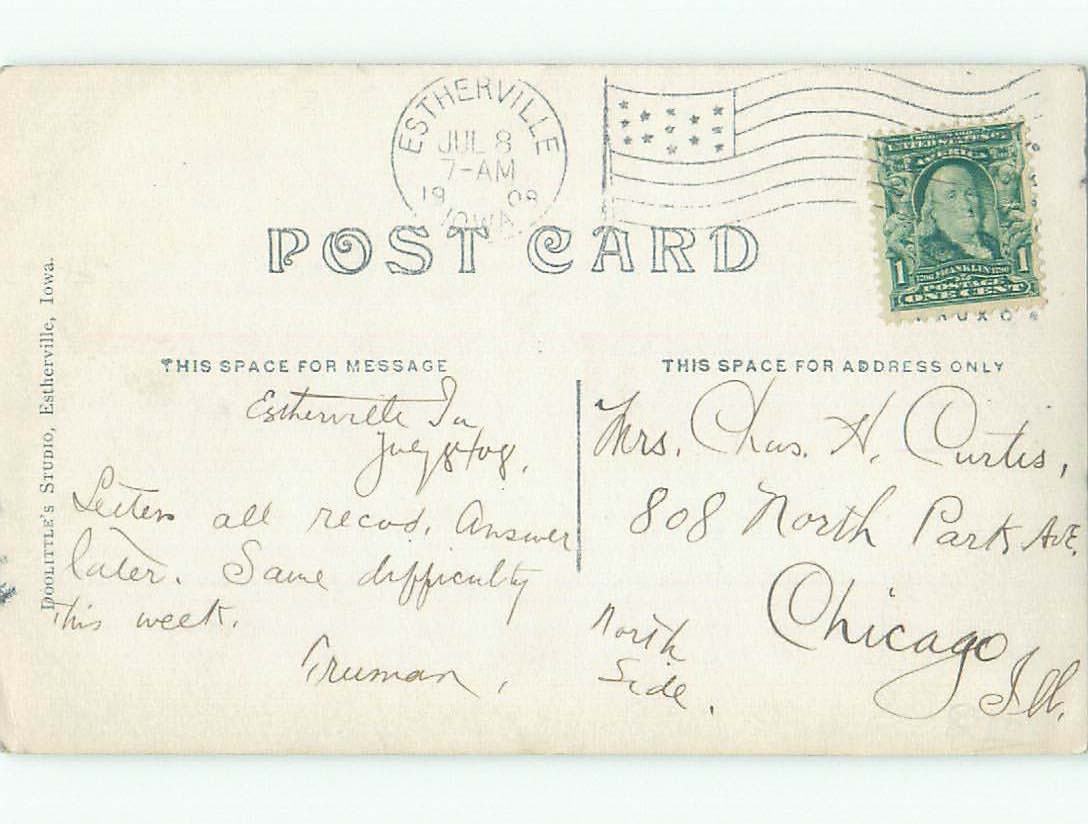 ESTHERVILLE
JUL 8
7-AM
1908
IOWA
UNITED STATES OF
AMERICA
1 1
1706 FRANKLIN 1790
POSTAGE
ONE CENT
POST CARD
DOOLITTLE'S STUDIO, Estherville, Iowa.
THIS SPACE FOR MESSAGE
Estherville Ia
July 8/08.
Letters all recvd. Answer
later. Same difficulty
this week.
Truman,
THIS SPACE FOR ADDRESS ONLY
Mrs. Chas. H. Curtis,
808 North Park Ave.
Chicago
Ill.
North
Side.